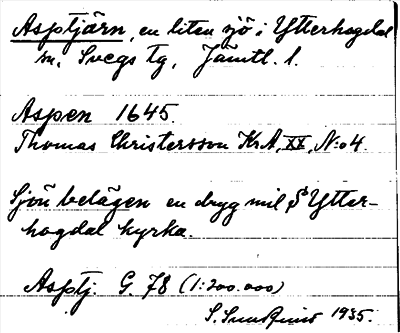 Asptjärn, en liten sjö i Ytterhogdal
sn, Svegs tg, Jämtl. l.
Aspen 1645.
Thomas Christersson KrA, XX, N:o 4.
Sjön belägen en dryg mil S Ytter-
hogdal kyrka.
Asptj. G. 78 (1:200.000)
1935.